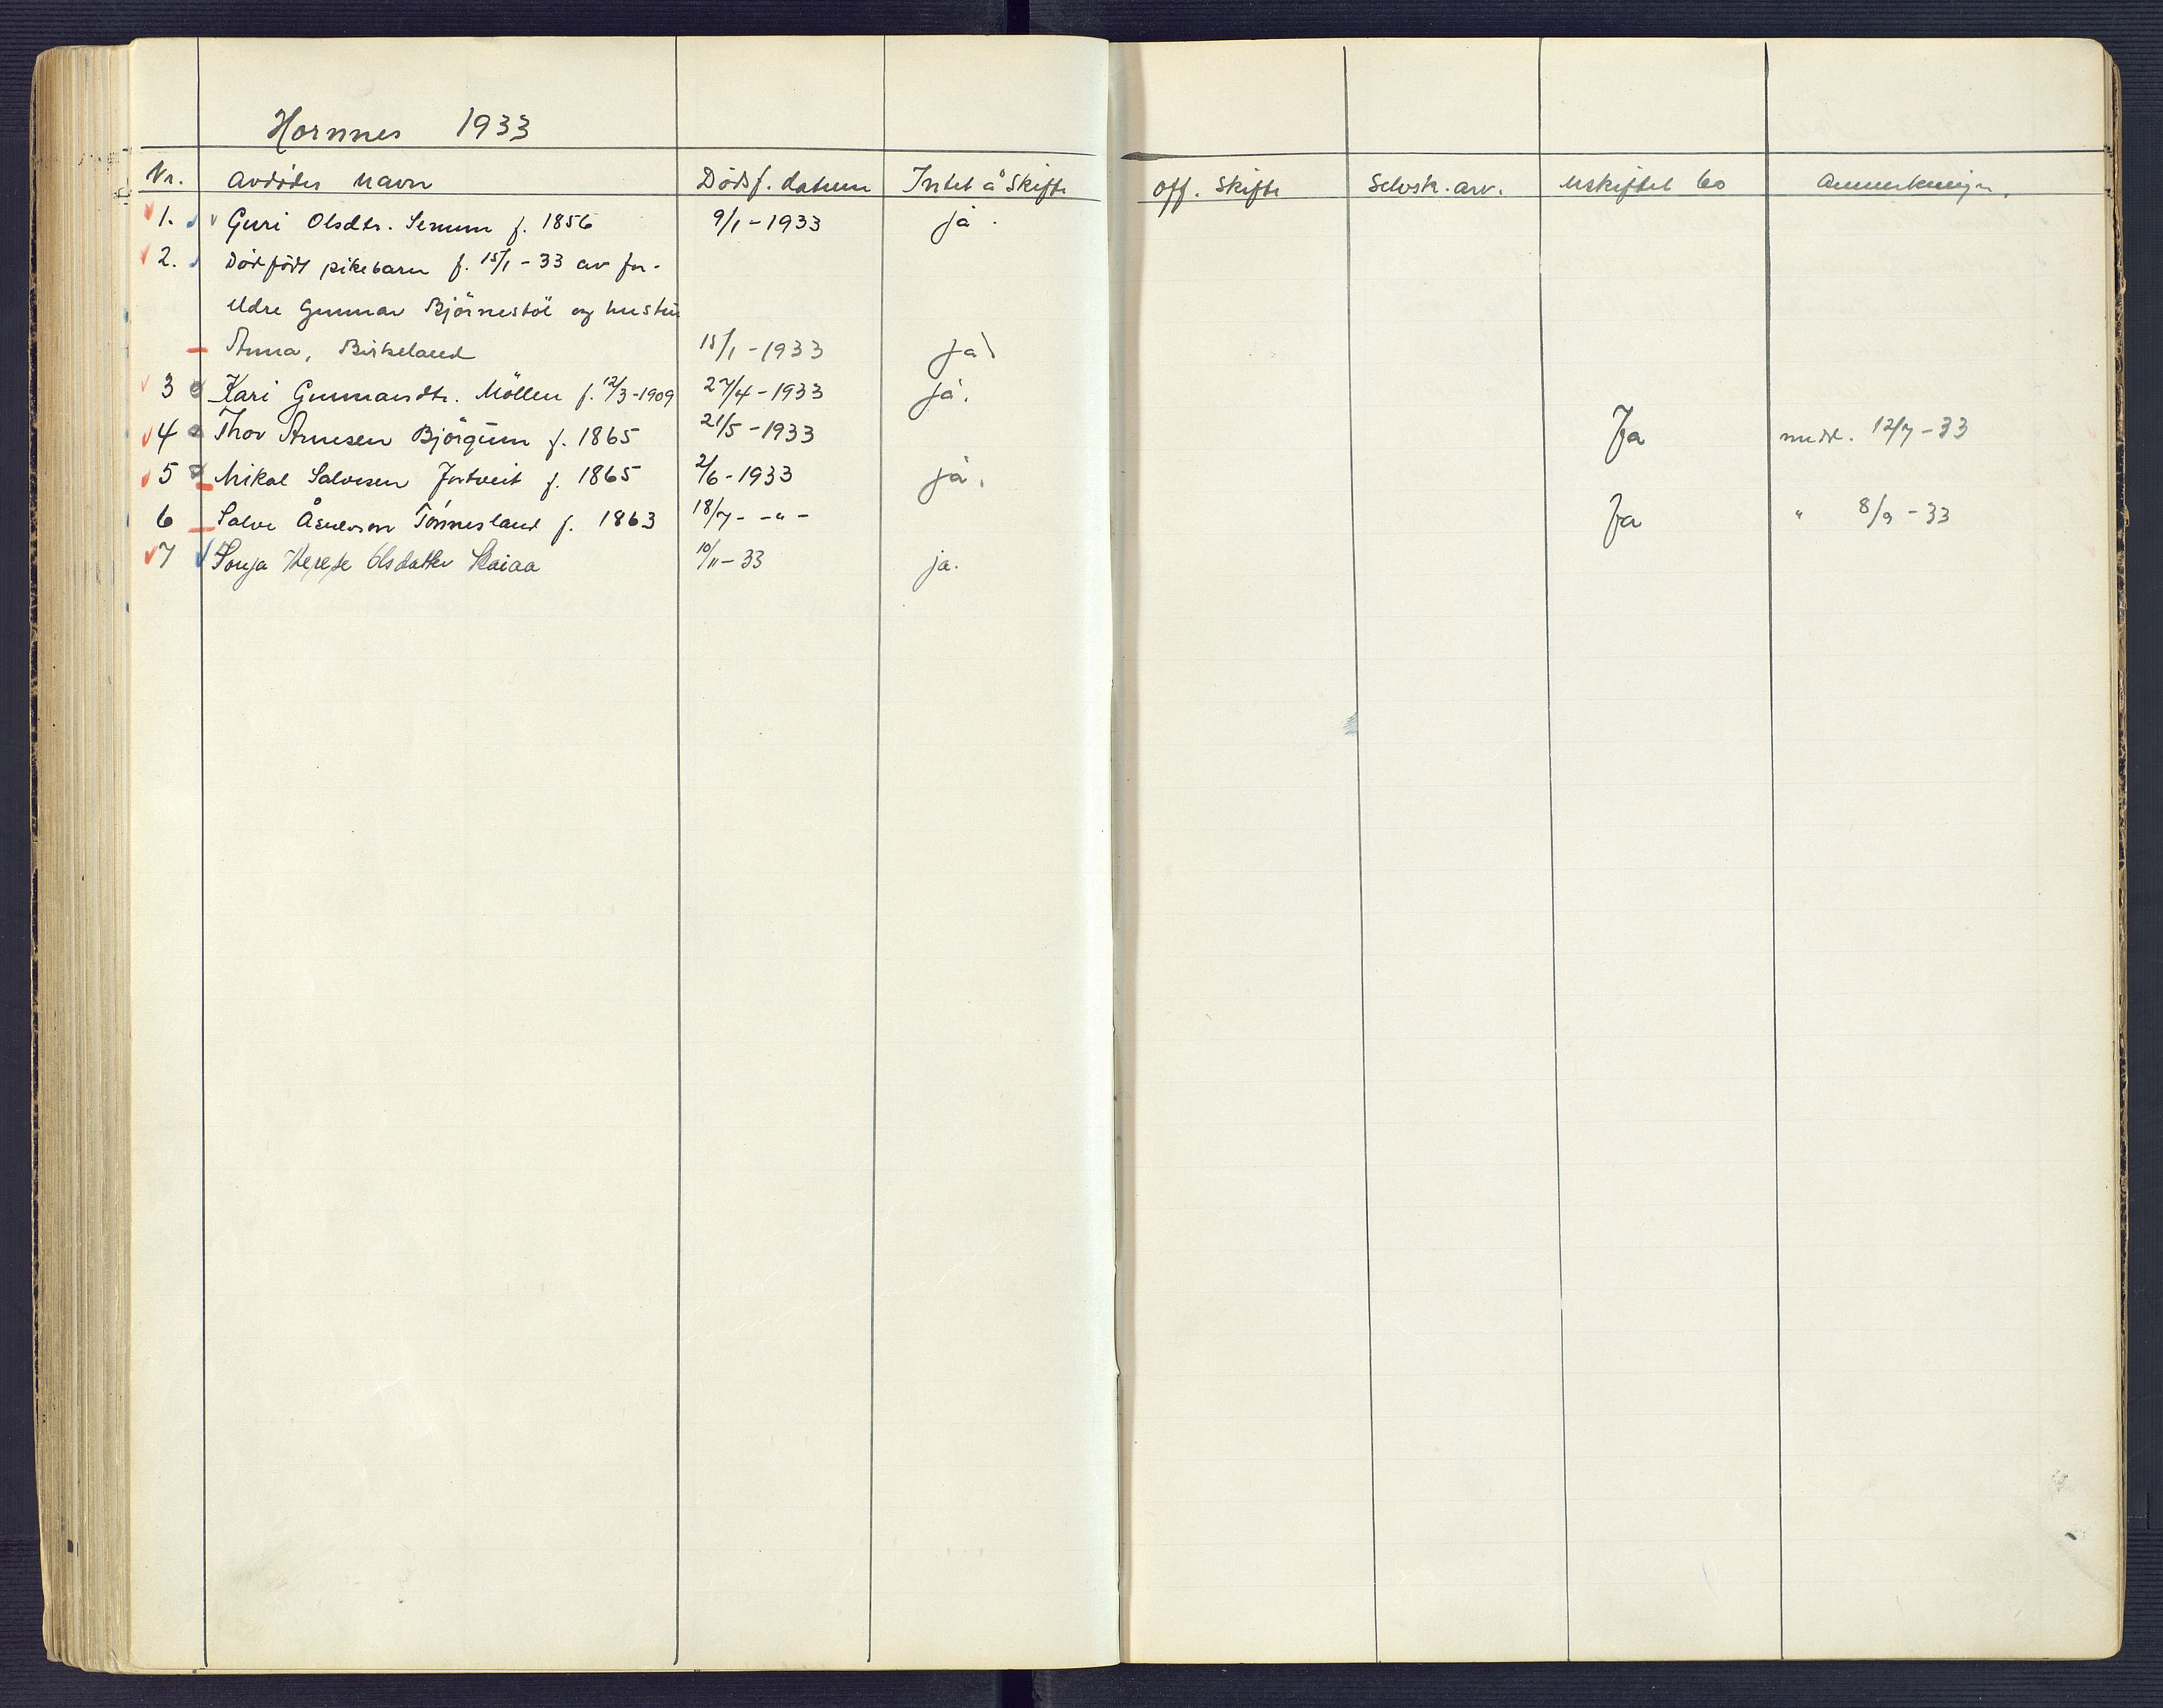 Hornnes 1933
Nr. Avdødes navn Dødsf. datum Intet å skifte Off. skifte Selvsk. arv. Uskiftet bo Anmerkninger.
1. Guri Olsdtr. Senum f. 1856 9/1-1933 ja.
2. Dødfødt pikebarn f. 15/1-33 av for-
eldre Gunnar Björnestöl og hustru
Anna, Birkeland 15/1-1933 ja
3 Kari Gunnarsdtr. Möllen f. 12/3-1909 27/4-1933 ja.
4 Thov Arnesen Björgum f. 1865 21/5-1933 Ja medd. 12/7-33
5 Mikal Salvesen Fortveit f. 1865 2/6-1933 ja.
6 Salve Åsulvson Tönnesland f. 1863 18/7- -"- Ja " 8/9-33
7 Sonja Olsdatter Skaiaa 10/11-33 ja.